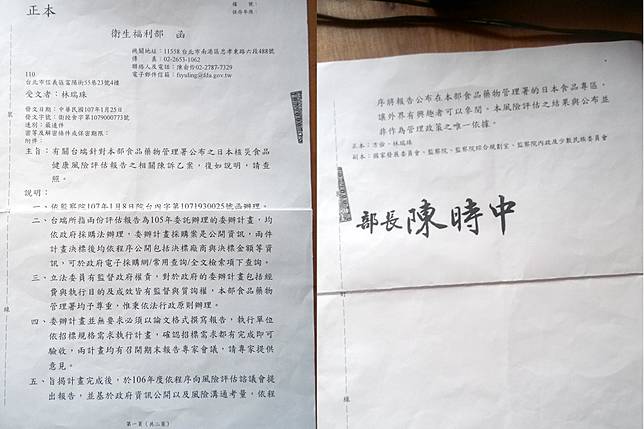 正本
檔 號：
保存年限：
衛生福利部 函
機關地址：11558 台北市南港區忠孝東路六段488號
傳 真：02-2653-1062
聯絡人及電話：陳俞伶02-2787-7329
電子郵件信箱：fiyuling@fda.gov.tw
110
台北市信義區富陽街55巷23號4樓
受文者：林瑞珠
發文日期：中華民國107年1月25日
發文字號：衛授食字第1079000773號
速別：最速件
密等及解密條件或保密期限：
附件：
主旨：有關台端針對本部食品藥物管理署公布之日本核災食品
健康風險評估報告之相關陳訴乙案，復如說明，請查
照。
說明：
一、依監察院107年1月8日院台內字第1071930025號函辦理。
二、台端所指兩份評估報告為105年委託辦理的委辦計畫，均
依政府採購法辦理，委辦計畫採購案是公開資訊，兩件
計畫決標後均依程序公開包括決標廠商與決標金額等資
訊，可於政府電子採購網/常用查詢/全文檢索項下查詢。
三、立法委員有監督政府權責，對於政府的委辦計畫包括經
費與執行目的及成效皆有監督與質詢權，本部食品藥物
管理署均予尊重，惟秉依法行政原則辦理。
四、委辦計畫並無要求必須以論文格式撰寫報告，執行單位
依招標規格需求執行計畫，確認招標需求都有完成即可
驗收，兩計畫均有召開期末報告專家會議，請專家提供
意見。
五、旨揭計畫完成後，於106年度依程序向風險評估諮議會提
出報告，並基於政府資訊公開以及風險溝通考量，依程
第一頁（共二頁）
裝
線
序將報告公布在本部食品藥物管理署的日本食品專區，
讓外界有興趣者可以參閱。本風險評估之結果與公布並
非作為管理政策之唯一依據。
正本：方儉、林瑞珠
副本：國家發展委員會、監察院、監察院綜合規劃室、監察院內政及少數民族委員會
部長陳時中
訂
線